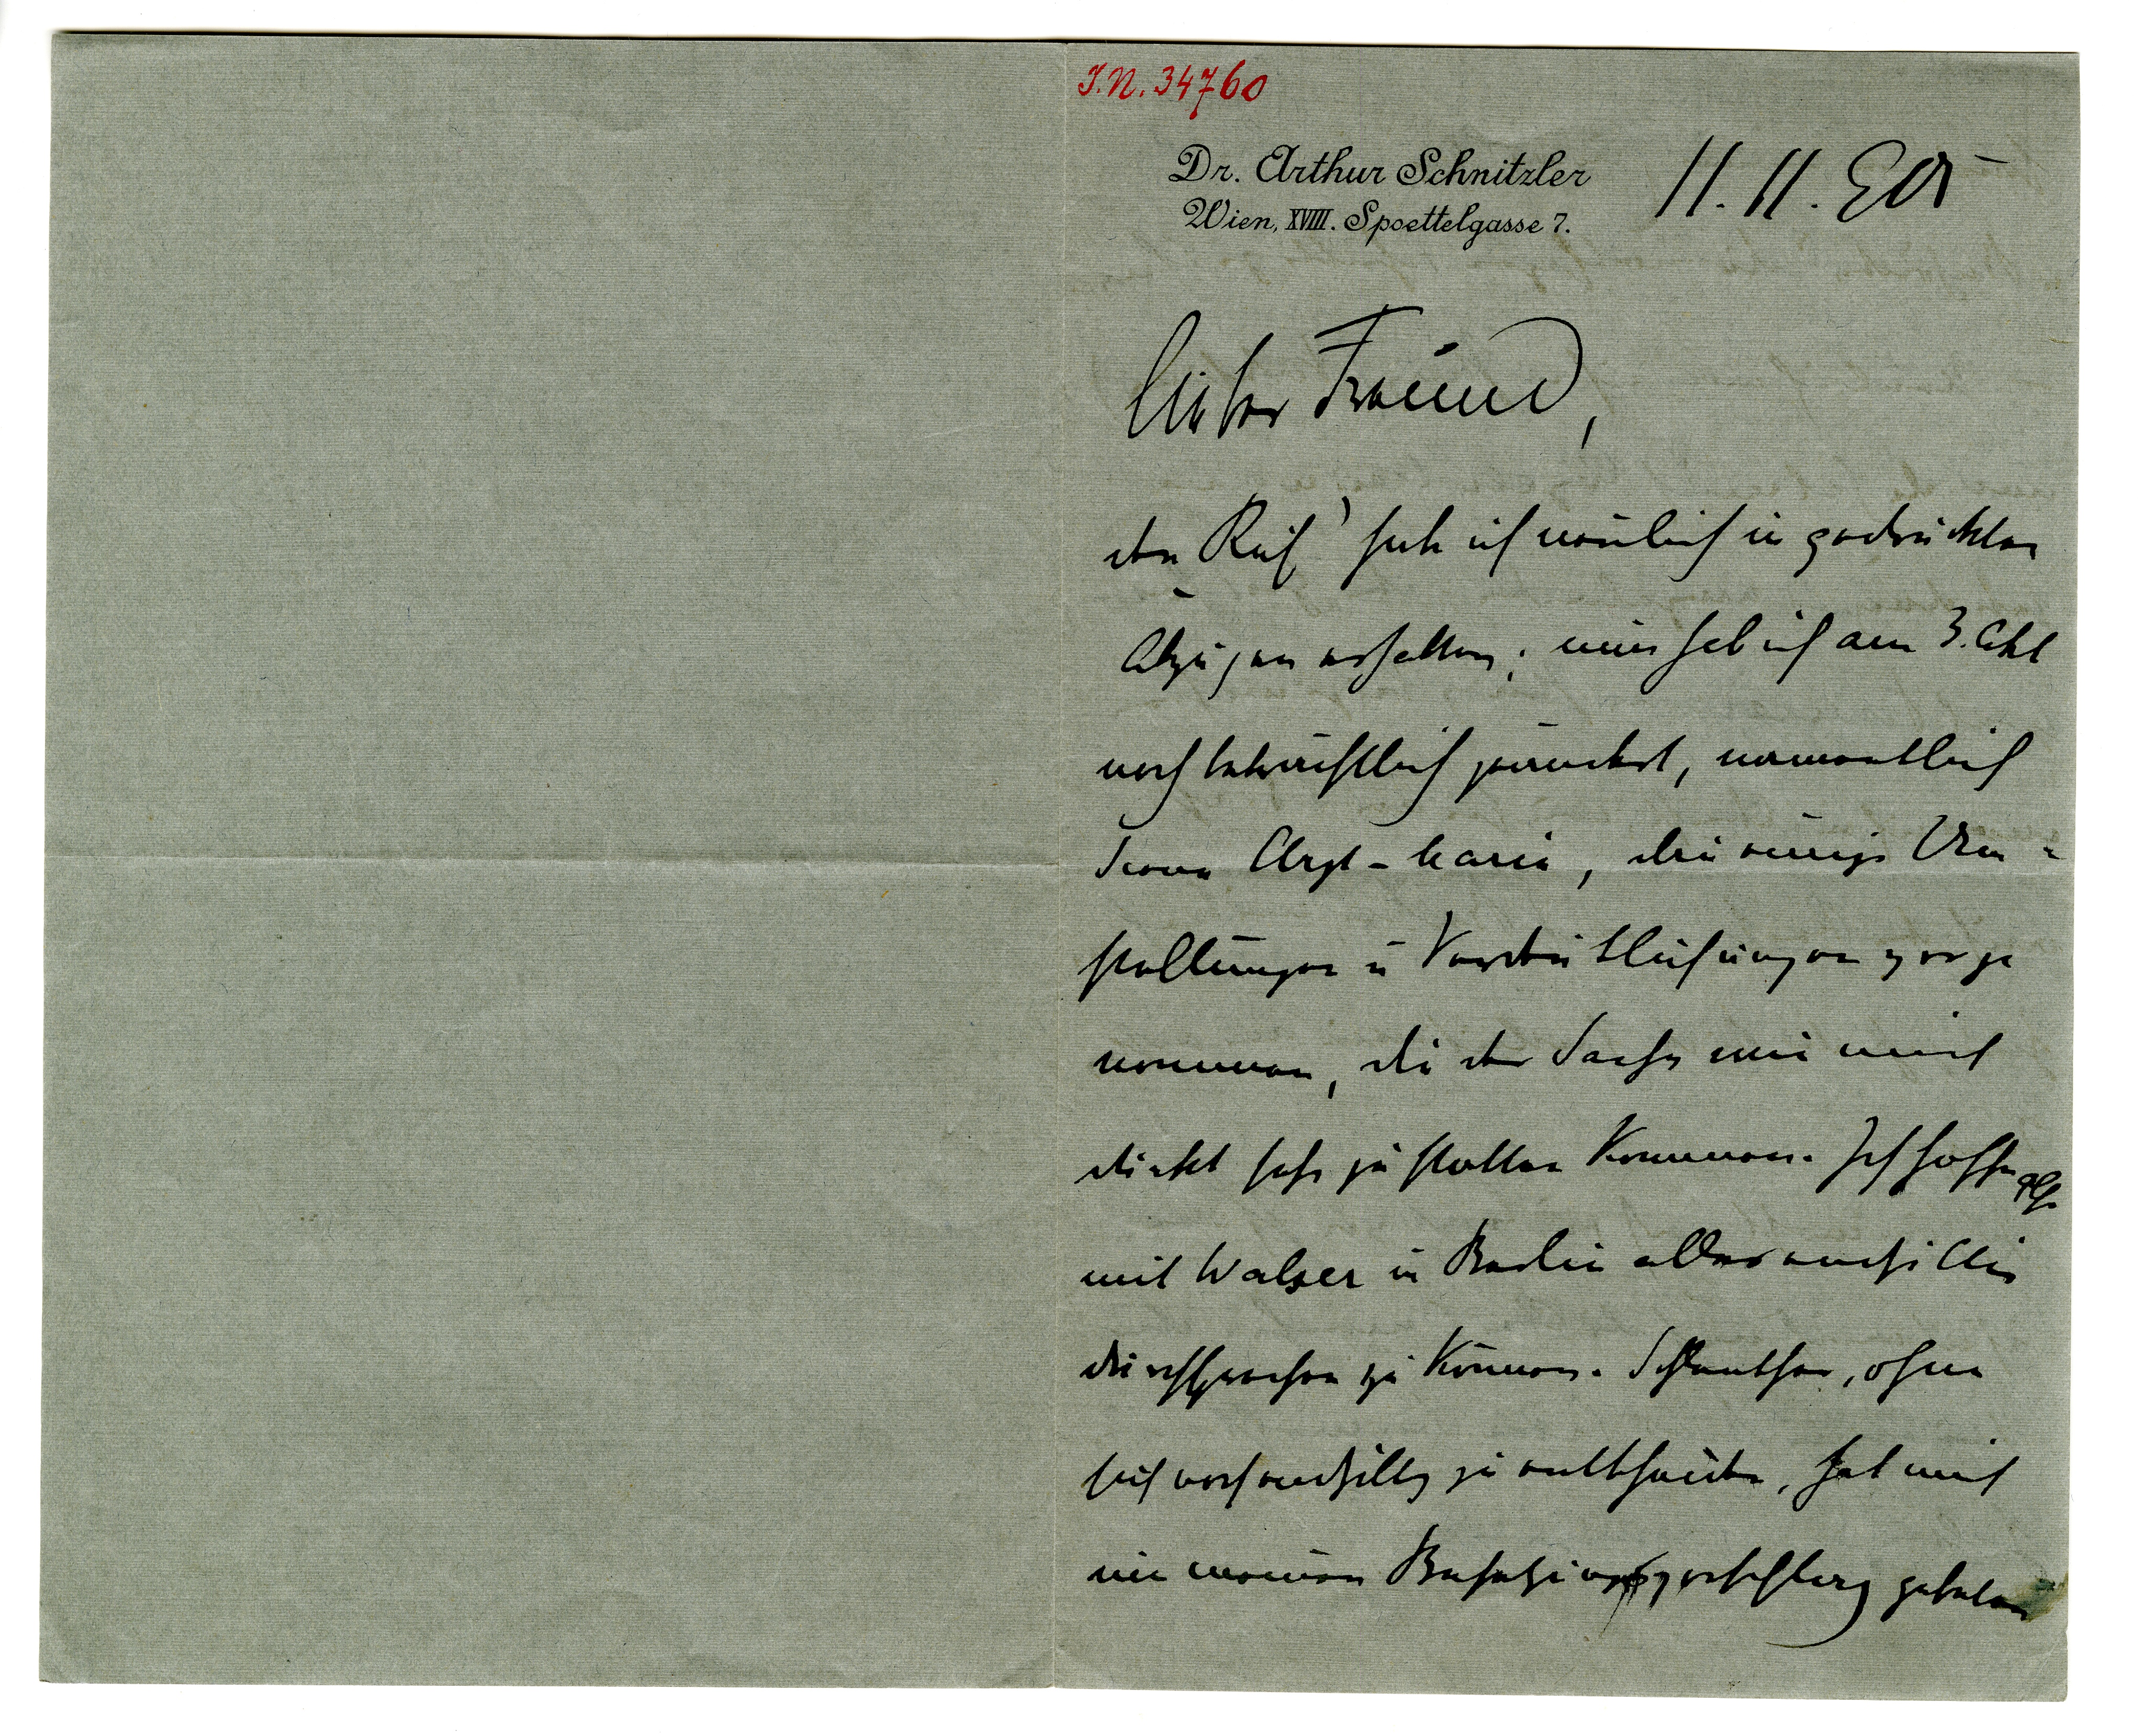 I.N. 34760
Dr. Arthur Schnitzler
Wien, XVIII. Spoettelgasse 7.
11. 11. 905
lieber Freund,
den „Ruf“ habe ich neulich in gedruckten
Abzügen erhalten; nun hab ich am 3. Akt
noch beträchtlich geändert, namentlich
Scene Arzt–Marie, dann einige Um=
stellungen u Verdeutlichungen vorge
nommen, die der Sache wie mich
dünkt sehr zu statten kommen. Ich hoffe also
mit Walser in Berlin alles
durchsprechen zu können. Schlenther, ohne
sich noch endgiltig zu entscheiden, hat mich
um meinen Besetzungsvorschlag gebeten